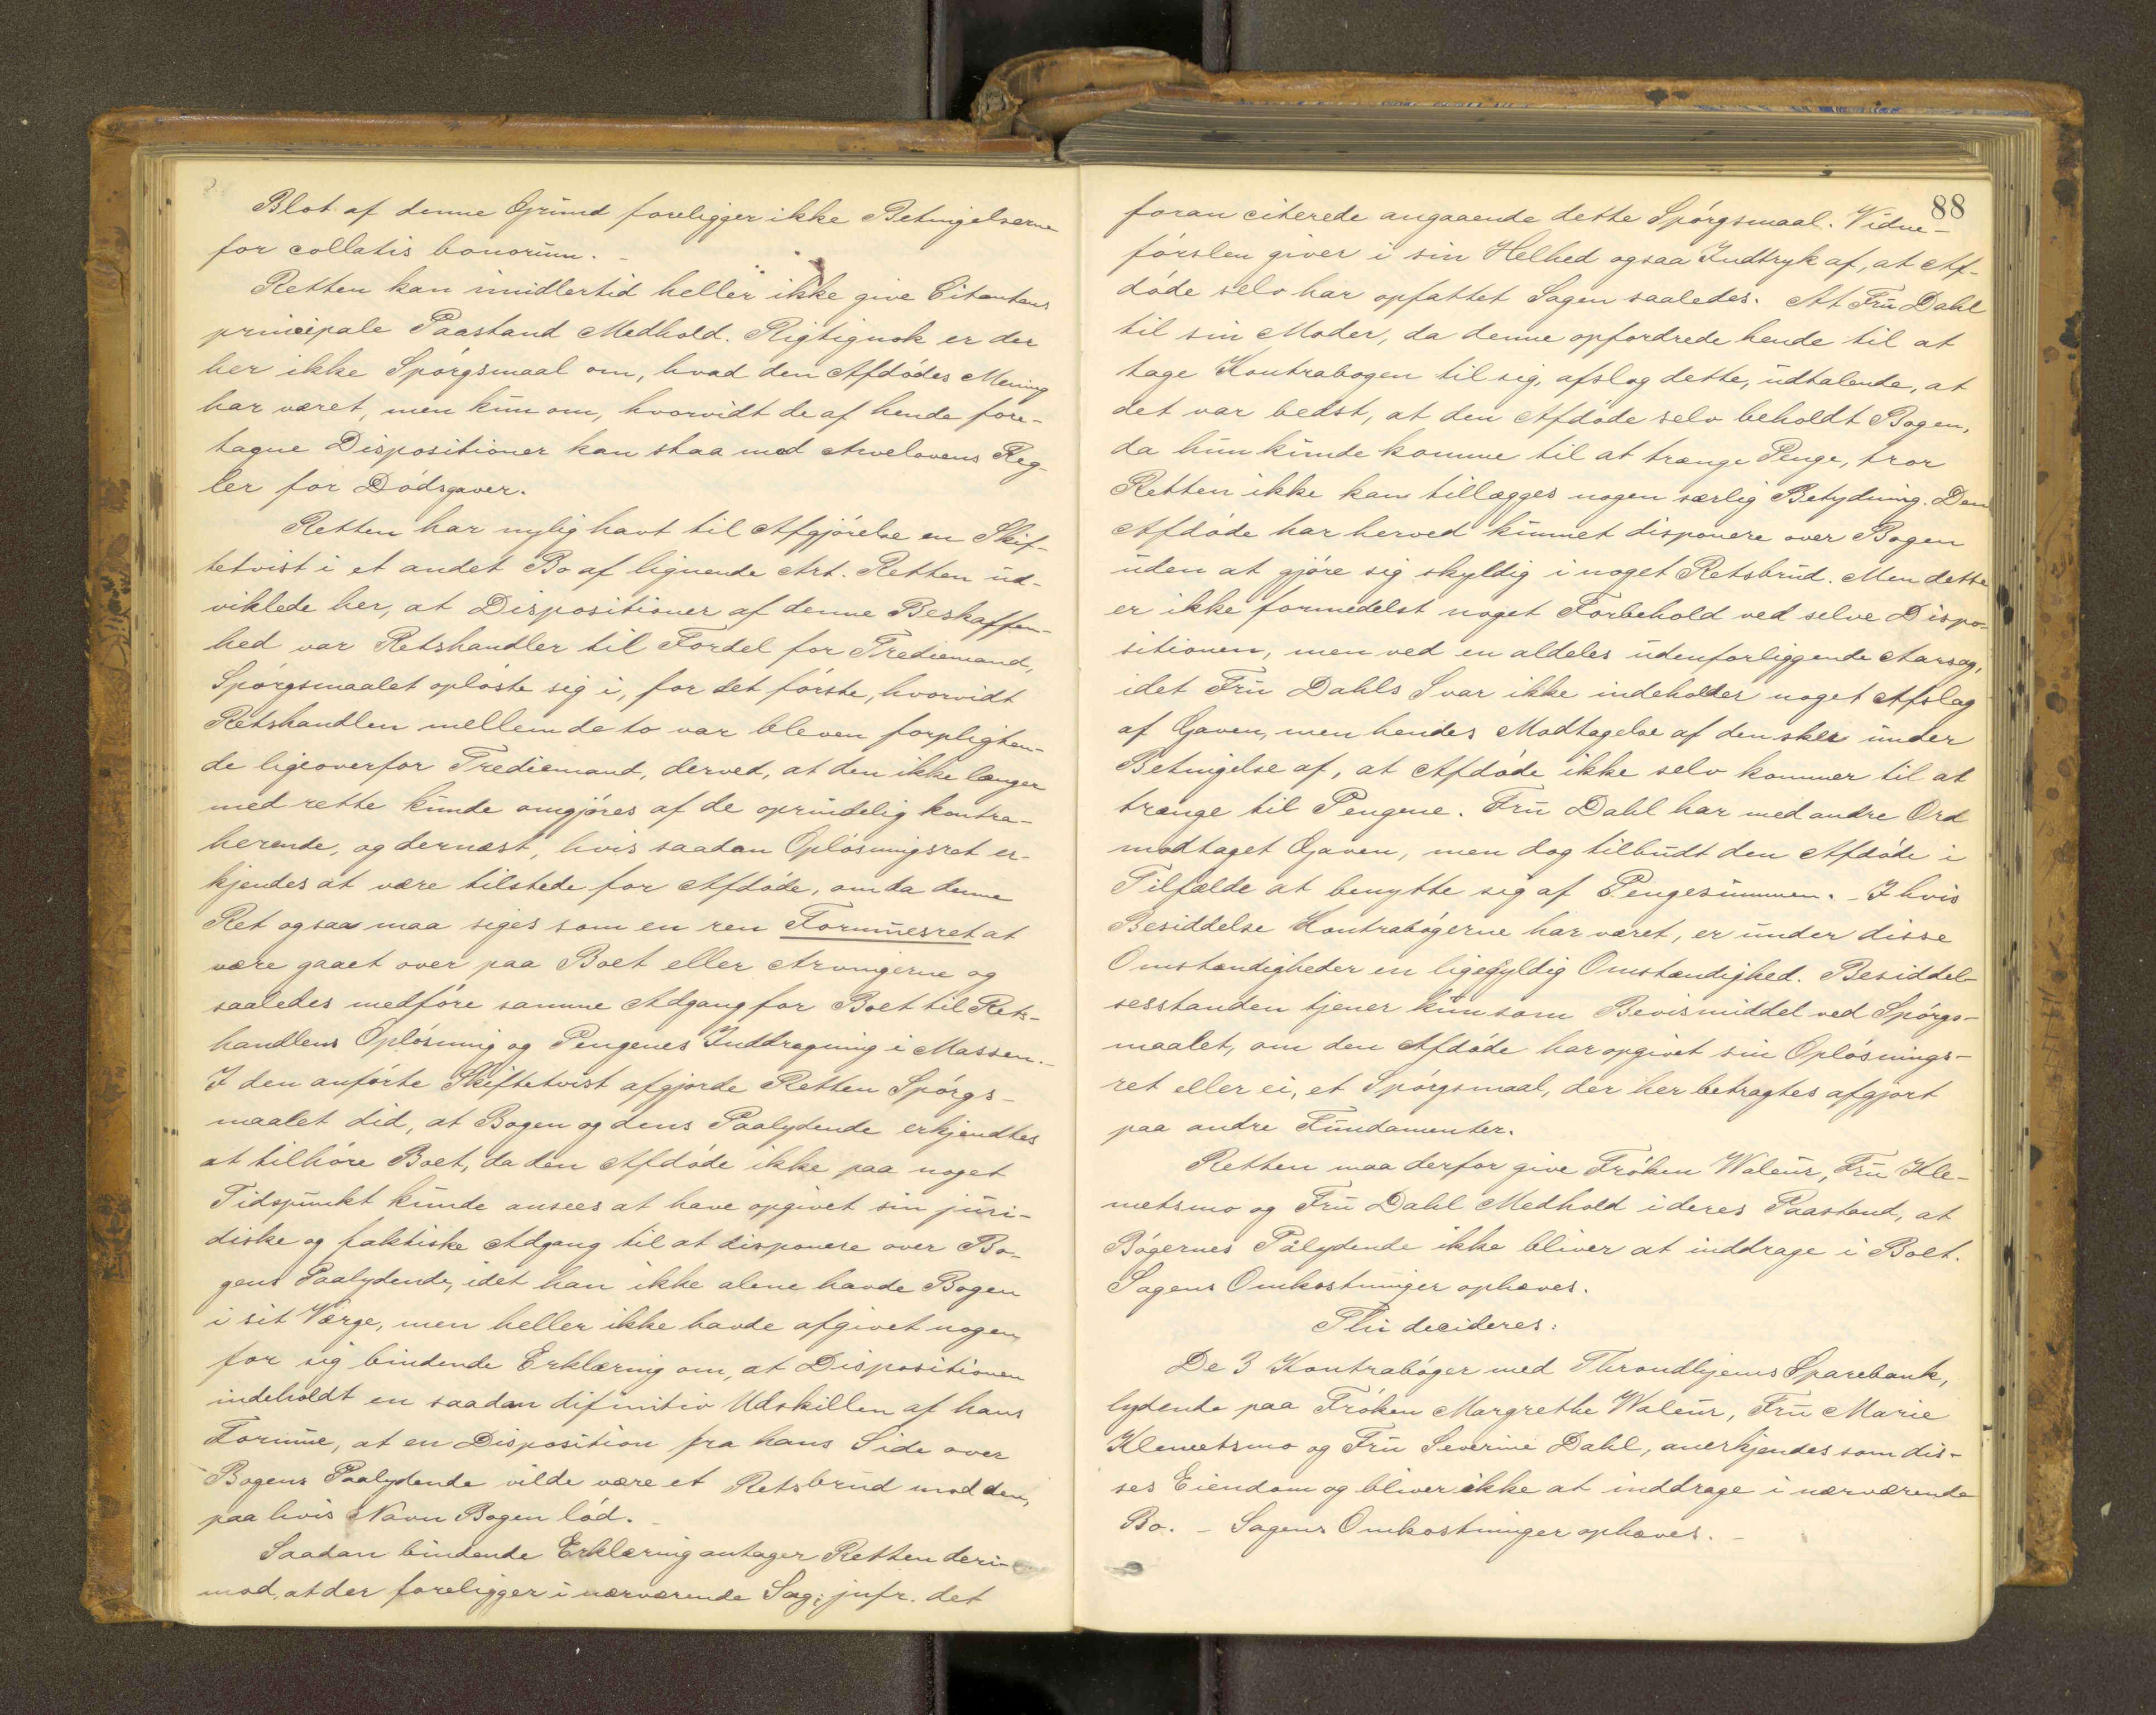 Blot af denne Grund foreligger ikke Betingelserne
for collatis bonorum. -
Retten kan imidlertid heller ikke give Citantens
principale Paastand Medhold. Rigtignok er der
her ikke Spórgsmaal om, hvad den Afdódes Mening
har været, men kun om, hvorvidt de af hende fore-
tagne Dispositioner kan staa med Arvelovens Reg-
ler for Dódsgaver.
Retten har nylig havt til Afgjórelse en Skif-
tetvist i et andet Bo af lignende Art. Retten ud-
viklede her, at Dispositioner af denne Beskaffen-
hed var Retshandler til Fordel for Trediemand,
Spórgsmaalet oplóste sig i, for det fórste, hvorvidt
Retshandlen mellem de to var bleven forpligten-
de ligeoverfor Trediemand, derved, at den ikke længer
med rette kunde omgjóres af de oprindelig kontra-
herende, og dernæst, hvis saadan Oplósningsret er-
kjendes at være tilstede for Afdóde, om da denne
Ret ogsaa maa siges som en ren Formuesret at
være gaaet over paa Boet eller Arvingerne og
saaledes medfóre samme Adgang for Boet til Rets-
handlens Oplósning og Pengenes Inddragning i Massen. -
I den anfórte Skiftetvist afgjorde Retten Spórgs-
maalet did, at Bogen og dens Paalydende erkjendtes
at tilhóre Boet, da den Afdóde ikke paa noget
Tidspunkt kunde ansees at have opgivet sin juri-
diske og faktiske Adgang til at disponere over Bo-
gens Paalydende, idet han ikke alene havde Bogen
i sit Værge, men heller ikke havde afgivet nogen
for sig bindende Erklæring om, at Dispositionen
indeholdt en saadan difinitiv Udskillen af hans
Formue, at en Disposition fra hans Side over
Bogens Paalydende vilde være et Retsbrud mod den,
paa hvis Navn Bogen lód. -
Saadan bindende Erklæring antager Retten deri-
mod, at der foreligger i nærværende Sag; jnfr. det
88
foran citerede angaaende dette Spórgsmaal. Vidne-
fórslen giver i sin Helhed ogsaa Indtryk af, at Af-
dóde selv har opfattet Sagen saaledes. At Fru Dahl
til sin Moder, da denne opfordrede hende til at
tage Kontrabogen til sig, afslog dette, udtalende, at
det var bedst, at den Afdóde selv beholdt Bogen,
da hun kunde komme til at trænge Penge, tror
Retten ikke kan tillægges nogen særlig Betydning. Den
Afdóde har herved kunnet disponere over Bogen
uden at gjóre sig skyldig i noget Retsbrud. Men dette
er ikke formedelst noget Forbehold ved selve Dispo-
sitionen, men ved en aldeles udenforliggende Aarsag,
idet Fru Dahls Svar ikke indeholder noget Afslag
af Gaven, men hendes Modtagelse af den sker under
Betingelse af, at Afdóde ikke selv kommer til at
trænge til Pengene. Fru Dahl har med andre Ord
modtaget Gaven, men dog tilbudt den Afdóde i
Tilfælde at benytte sig af Pengesummen. - I hvis
Besiddelse Kontrabógerne har været, er under disse
Omstændigheder en ligegyldig Omstændighed. Besiddel-
sesstanden tjener kun som Bevismiddel ved Spórgs-
maalet, om den Afdóde har opgivet sin Oplósnings-
ret eller ei, et Spórgsmaal, der her betragtes afgjort
paa andre Fundamenter.
Retten maa derfor give Fróken Waleur, Fru Kle-
metsmo og Fru Dahl Medhold i deres Paastand, at
Bógernes Pålydende ikke bliver at inddrage i Boet.
Sagens Omkostninger ophæves.
Thi decideres:
De 3 Kontrabóger med Throndhjems Sparebank,
lydende paa Fróken Margrethe Waleur, Fru Marie
Klemetsmo og Fru Severine Dahl, anerkjendes som dis-
ses Eiendom og bliver ikke at inddrage i nærværende
Bo. - Sagens Omkostninger ophæves. -